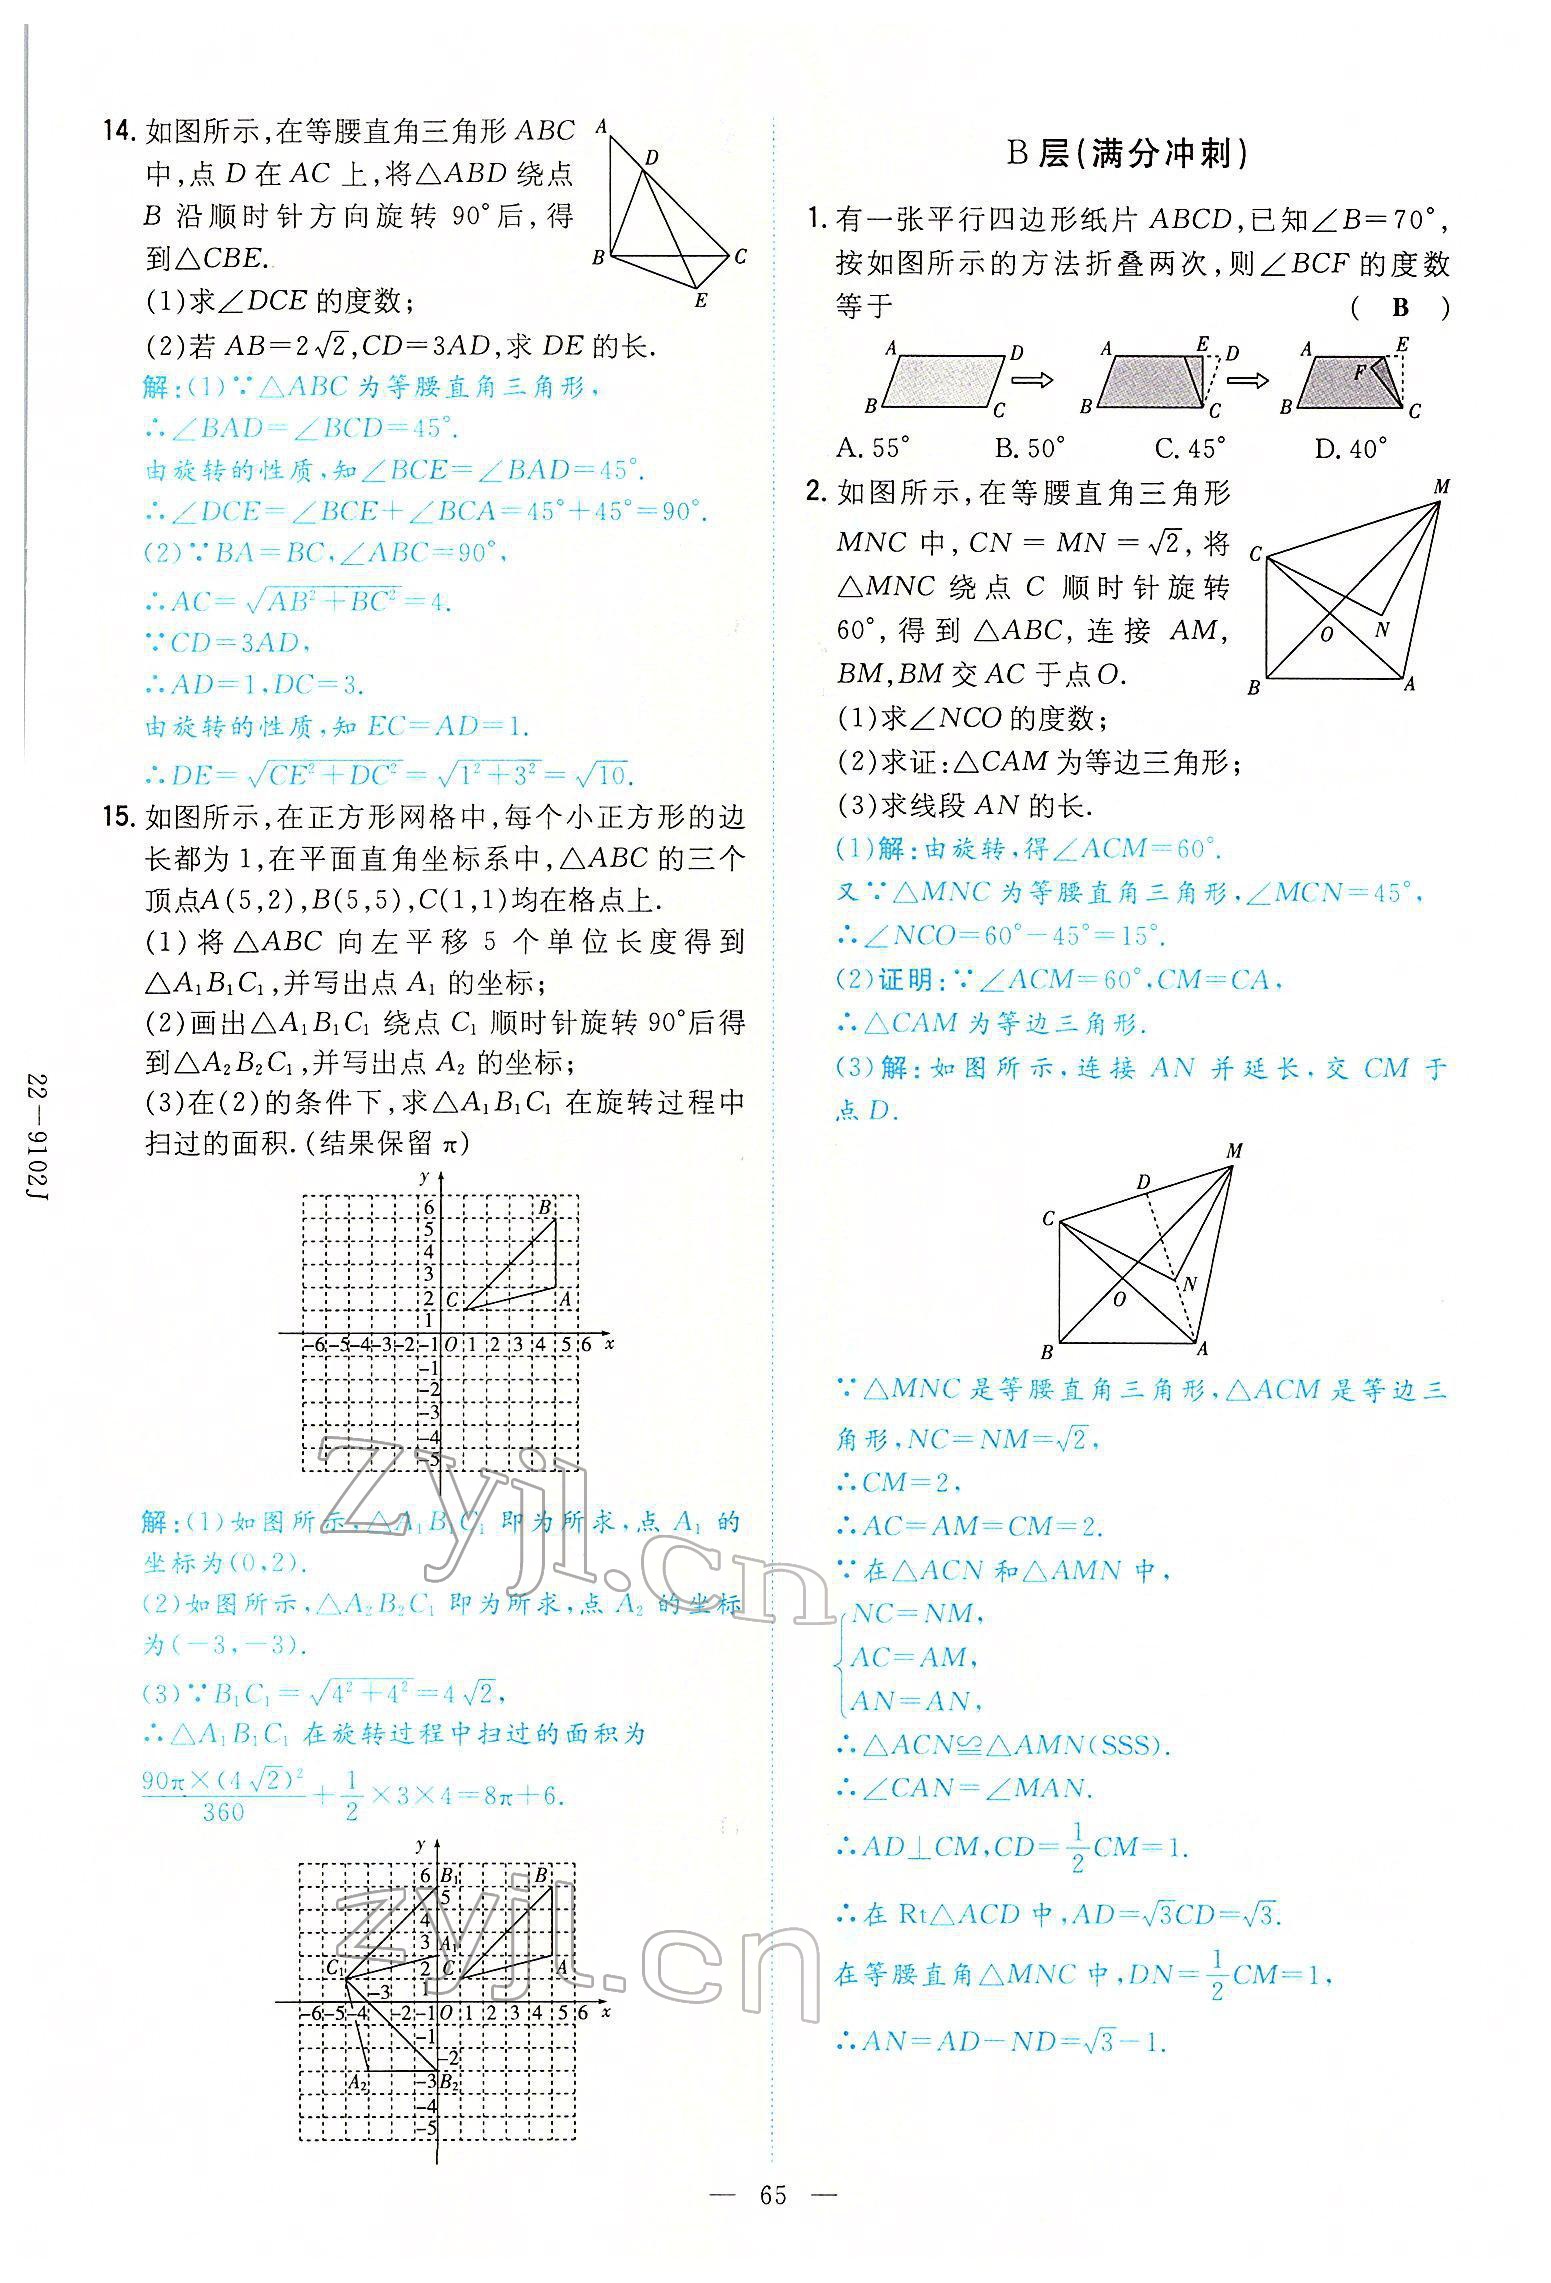 14. 如图所示,在等腰直角三角形 ABC
中,点 D 在 AC 上,将△ABD 绕点
B 沿顺时针方向旋转 90°后,得
到△CBE.
(1)求∠DCE 的度数;
(2)若 AB=2√2,CD=3AD,求 DE 的长.
A
D
B
C
E
解:(1)∵△ABC 为等腰直角三角形,
∴∠BAD=∠BCD=45°.
由旋转的性质,知∠BCE=∠BAD=45°.
∴∠DCE=∠BCE+∠BCA=45°+45°=90°.
(2)∵BA=BC,∠ABC=90°,
∴AC=√(AB²+BC²)=4.
∵CD=3AD,
∴AD=1,DC=3.
由旋转的性质,知 EC=AD=1.
∴DE=√(CE²+DC²)=√(1²+3²)=√10.
15. 如图所示,在正方形网格中,每个小正方形的边
长都为 1,在平面直角坐标系中,△ABC 的三个
顶点A(5,2),B(5,5),C(1,1)均在格点上.
(1)将△ABC 向左平移 5 个单位长度得到
△A₁B₁C₁,并写出点 A₁ 的坐标;
(2)画出△A₁B₁C₁ 绕点 C₁ 顺时针旋转 90°后得
到△A₂B₂C₁,并写出点 A₂ 的坐标;
(3)在(2)的条件下,求△A₁B₁C₁ 在旋转过程中
扫过的面积.(结果保留 π)
y
6 B
5
4
3
2 C A
1
-6-5-4-3-2-1 O 1 2 3 4 5 6 x
-1
-2
-3
-4
-5
解:(1)如图所示,△A₁B₁C₁ 即为所求,点 A₁ 的
坐标为(0,2).
(2)如图所示,△A₂B₂C₁ 即为所求,点 A₂ 的坐标
为(-3,-3).
(3)∵B₁C₁=√(4²+4²)=4√2,
∴△A₁B₁C₁ 在旋转过程中扫过的面积为
90π×(4√2)²/360+1/2×3×4=8π+6.
y
6 B₁ B
5
4
3 A₁
C₁ 2 C A
-3 1
-6-5-4 -2-1 O 1 2 3 4 5 6 x
-1
-2
A₂ -3 B₂
-4
-5
B 层(满分冲刺)
1. 有一张平行四边形纸片 ABCD,已知∠B=70°,
按如图所示的方法折叠两次,则∠BCF 的度数
等于 ( B )
A D A E D A E
F
B C B C B C
A. 55° B. 50° C. 45° D. 40°
2. 如图所示,在等腰直角三角形
MNC 中,CN=MN=√2,将
△MNC 绕点 C 顺时针旋转
60°,得到△ABC,连接 AM,
BM,BM 交 AC 于点O.
(1)求∠NCO 的度数;
(2)求证:△CAM 为等边三角形;
(3)求线段 AN 的长.
M
C
O N
B A
(1)解:由旋转,得∠ACM=60°.
又∵△MNC 为等腰直角三角形,∠MCN=45°,
∴∠NCO=60°-45°=15°.
(2)证明:∵∠ACM=60°,CM=CA,
∴△CAM 为等边三角形.
(3)解:如图所示,连接 AN 并延长,交 CM 于
点 D.
M
D
C
N
O
B A
∵△MNC 是等腰直角三角形,△ACM 是等边三
角形,NC=NM=√2,
∴CM=2,
∴AC=AM=CM=2.
∵在△ACN 和△AMN 中,
NC=NM,
AC=AM,
AN=AN,
∴△ACN≌△AMN(SSS).
∴∠CAN=∠MAN.
∴AD⊥CM,CD=1/2CM=1.
∴在 Rt△ACD 中,AD=√3CD=√3.
在等腰直角△MNC 中,DN=1/2CM=1,
∴AN=AD-ND=√3-1.
22-9102J
zyjl.cn
zyjl.cn
— 65 —